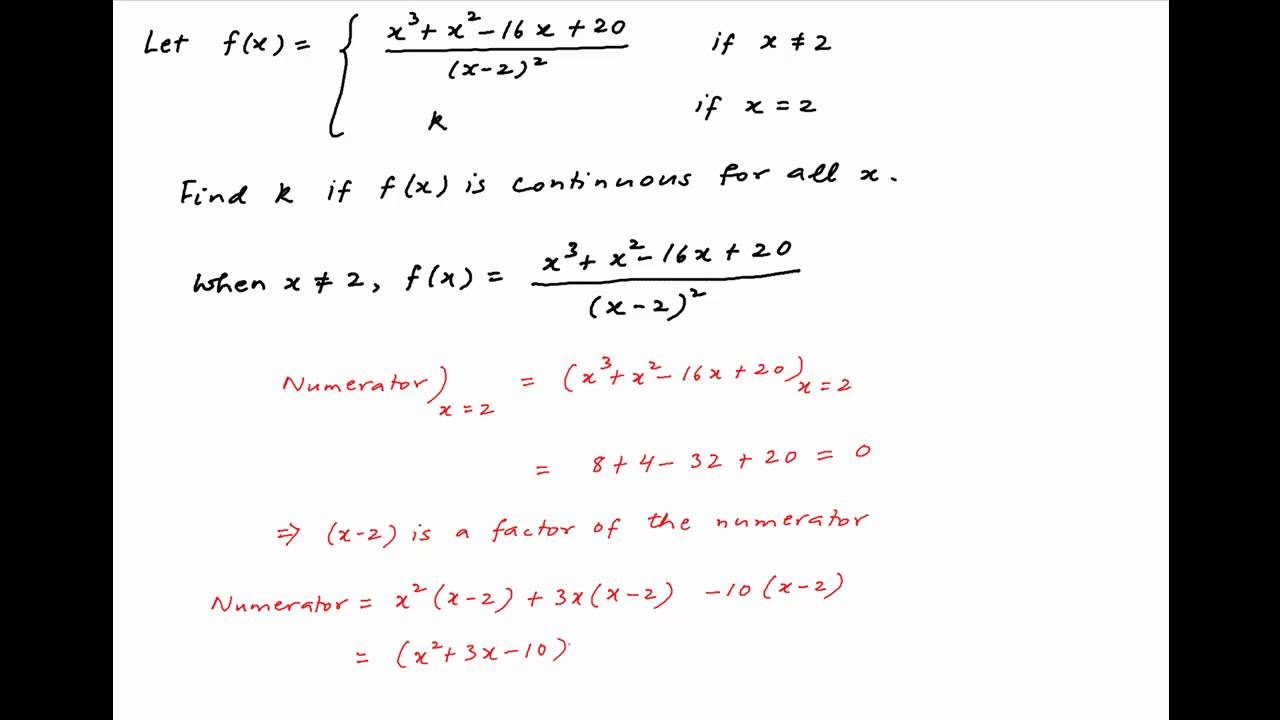 Let f(x) = { x³ + x² - 16x + 20 / (x-2)² if x ≠ 2
k if x = 2
Find k if f(x) is continuous for all x.
When x ≠ 2, f(x) = x³ + x² - 16x + 20 / (x-2)²
Numerator)x=2 = (x³ + x² - 16x + 20)x=2
= 8 + 4 - 32 + 20 = 0
⇒ (x-2) is a factor of the numerator
Numerator = x² (x-2) + 3x (x-2) - 10 (x-2)
= (x² + 3x - 10)